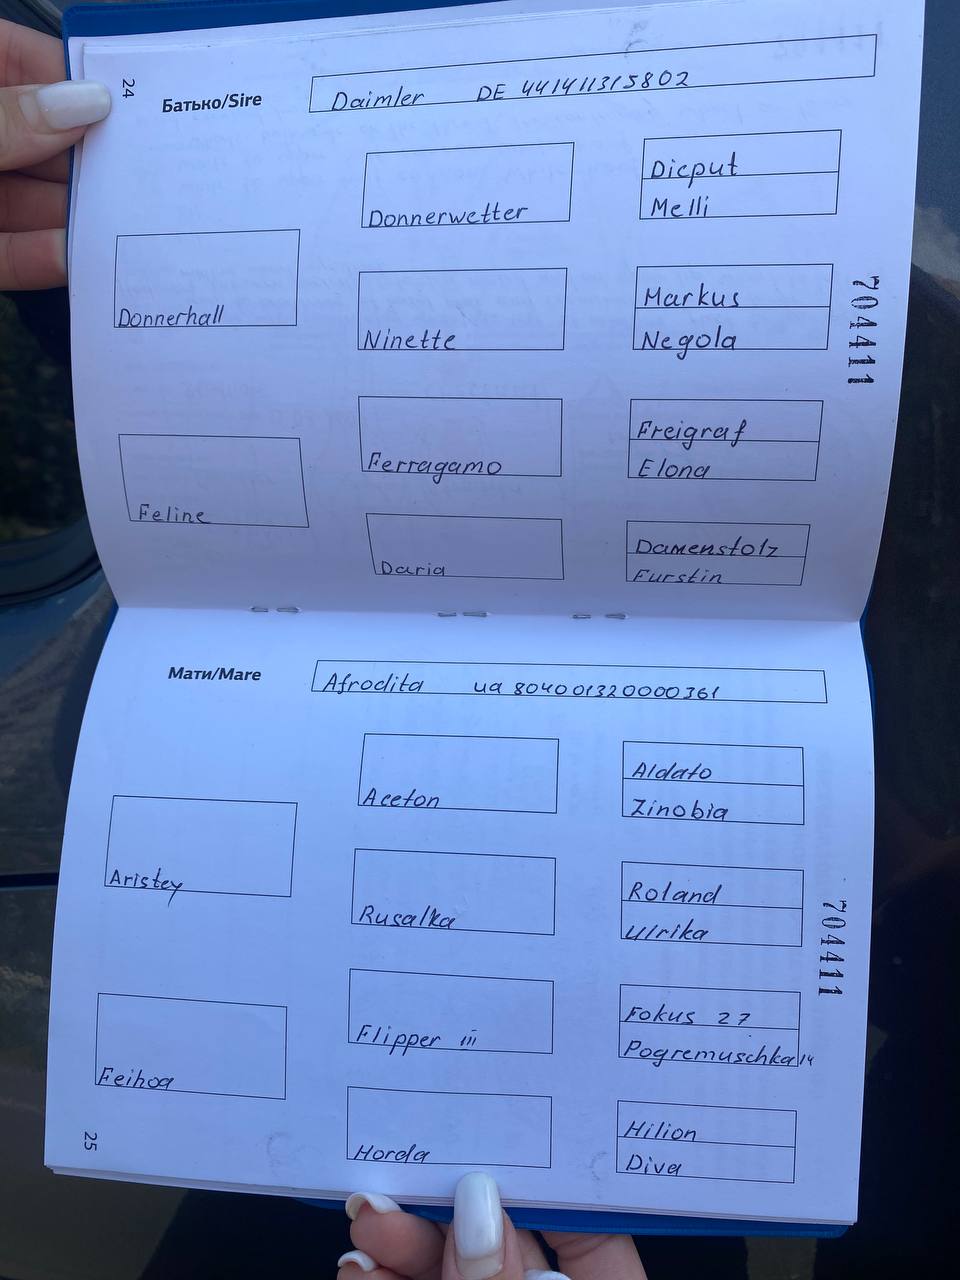 24
Батько/Sire
Daimler DE 441411315802
Donnerhall
Donnerwetter
Dicput
Melli
Ninette
Markus
Negola
Feline
Ferragamo
Freigraf
Elona
Daria
Damenstolz
Furstin
704411
Мати/Mare
Afrodita ua 804001320000361
Aristey
Aceton
Aldato
Zinobia
Rusalka
Roland
Ulrika
Feihoa
Flipper iii
Fokus 27
Pogremuschka 14
Horda
Hilion
Diva
704411
25